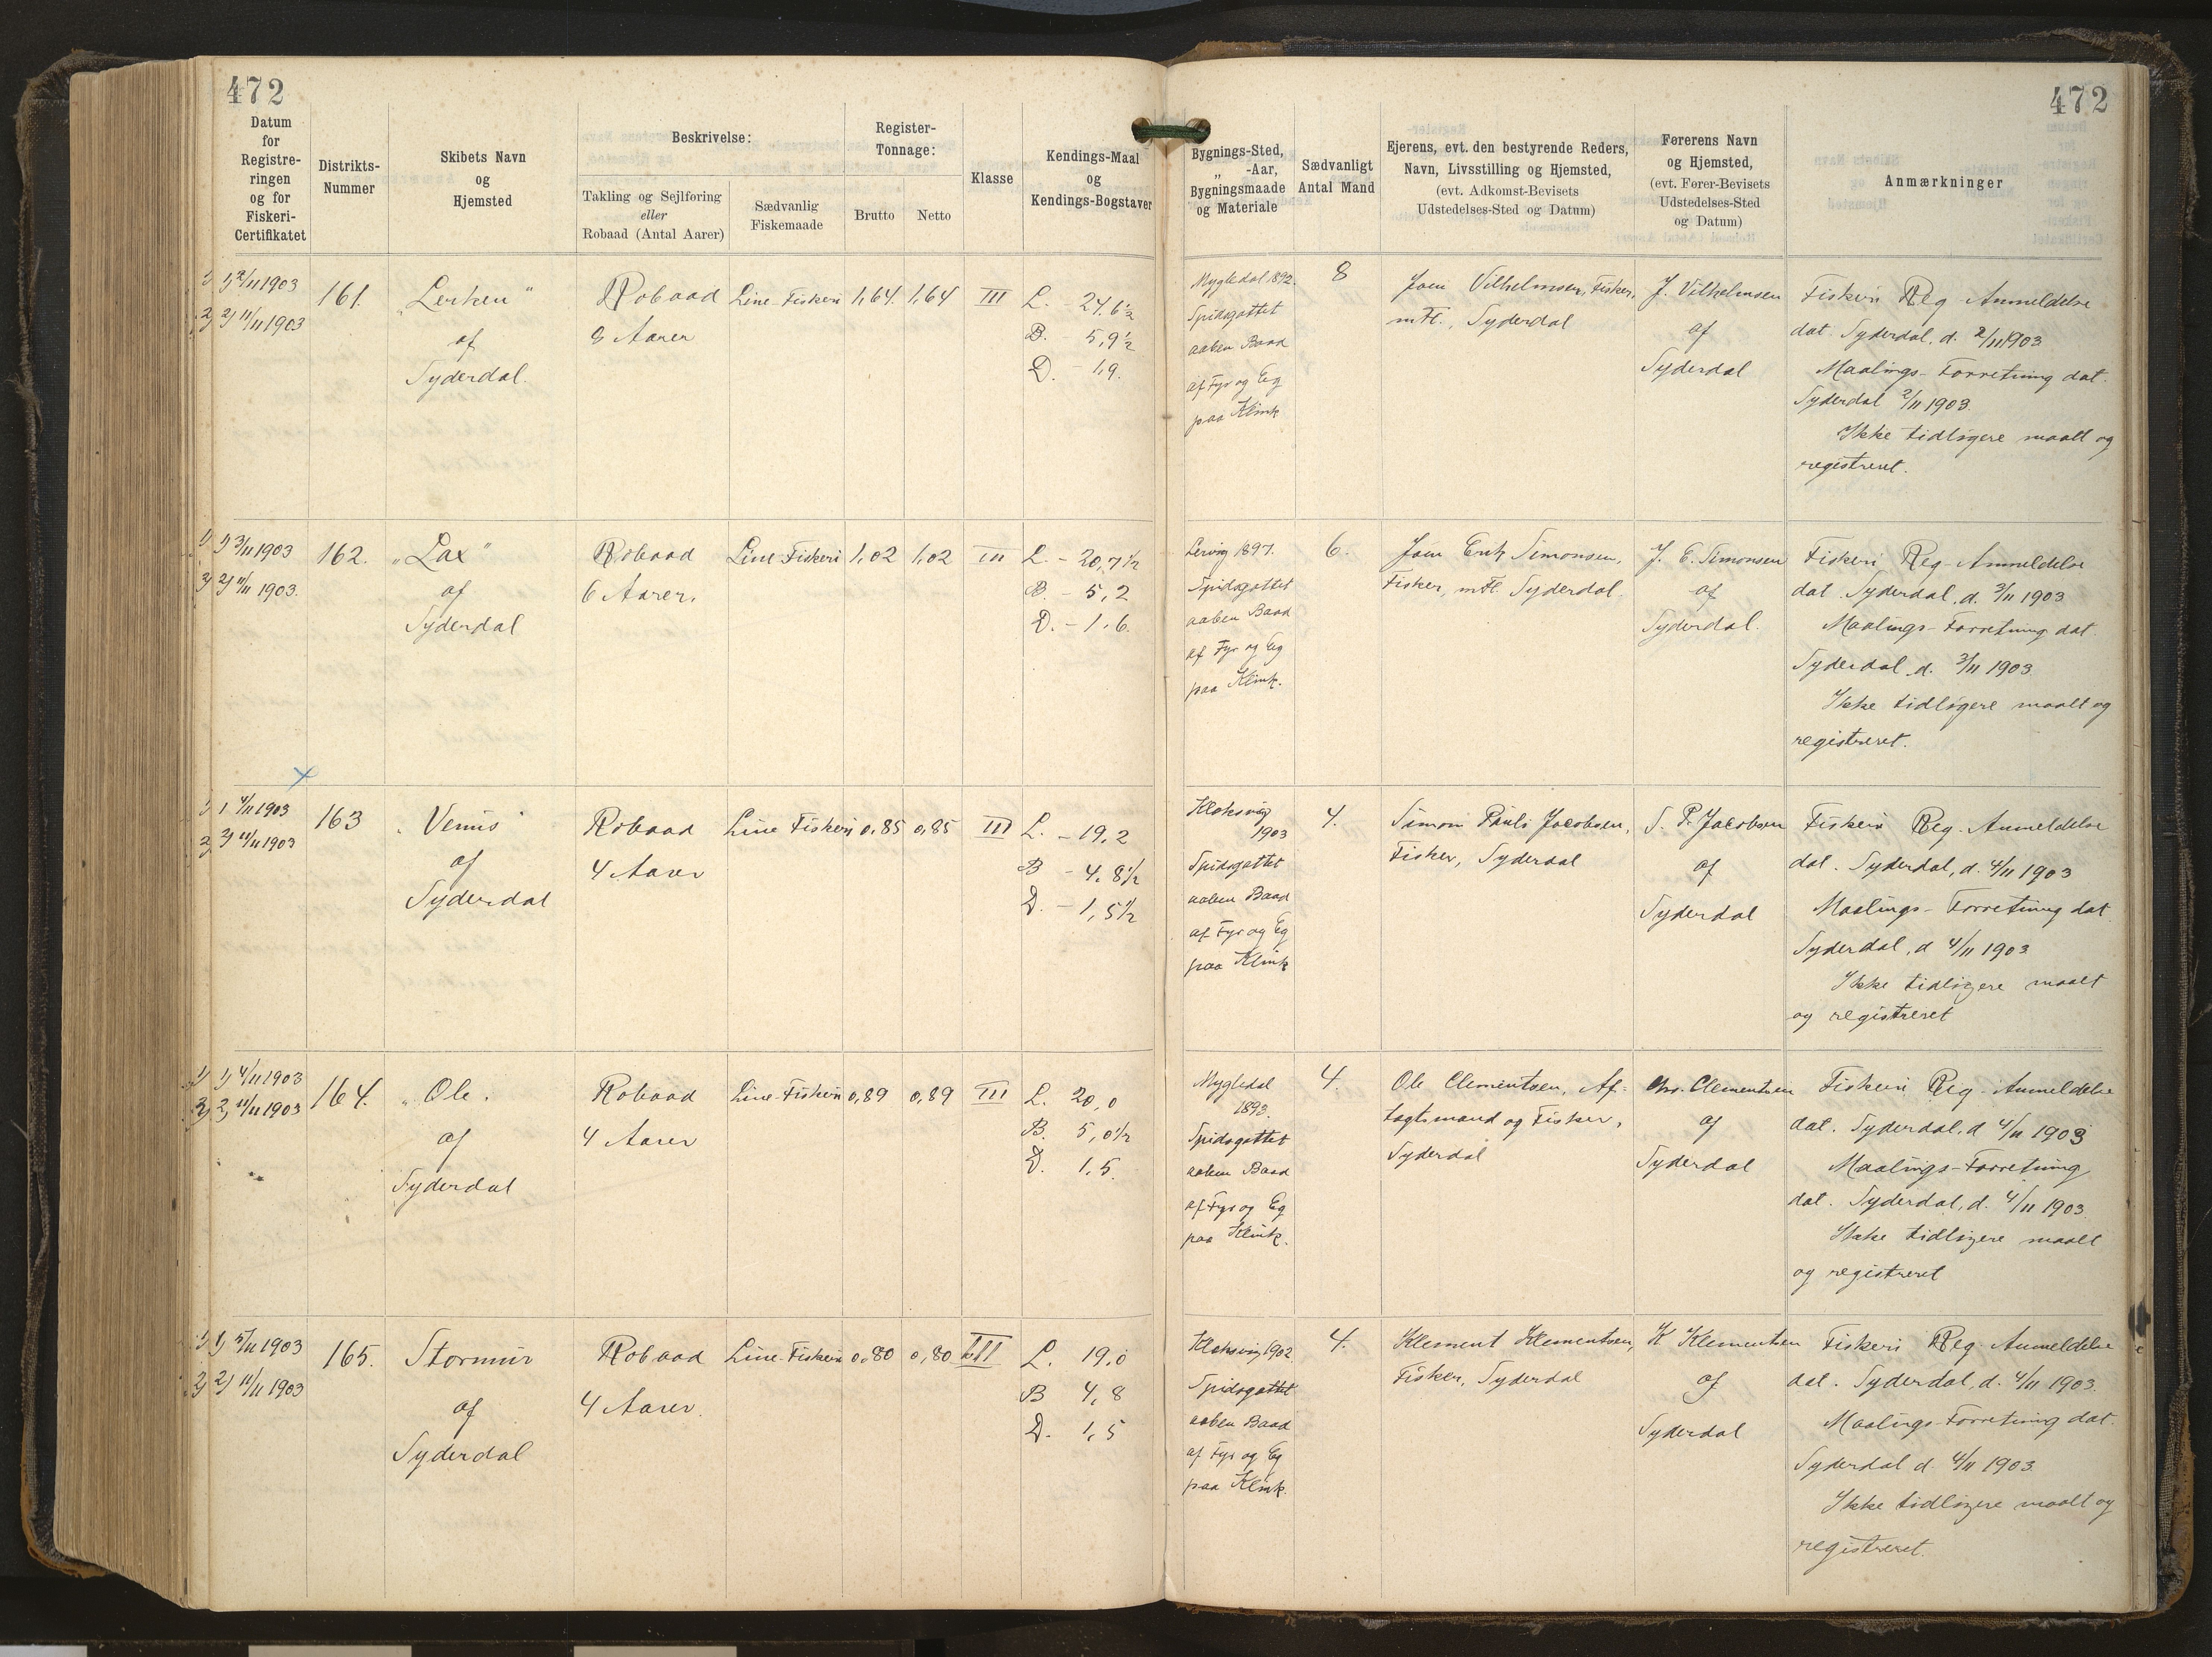 472
472
Datum
for
Registre-
ringen
og for
Fiskeri-
Certifikatet
Distrikts-
Nummer
Skibets Navn
og
Hjemsted
Beskrivelse:
Takling og Sejlføring
eller
Robaad (Antal Aarer)
Sædvanlig
Fiskemaade
Register-
Tonnage:
Brutto
Netto
Klasse
Kendings-Maal
og
Kendings-Bogstaver
Bygnings-Sted,
„ -Aar,
Bygningsmaade
og Materiale
Sædvanligt
Antal Mand
Ejerens, evt. den bestyrende Reders,
Navn, Livsstilling og Hjemsted,
(evt. Adkomst-Bevisets
Udstedelses-Sted og Datum)
Førerens Navn
og Hjemsted,
(evt. Fører-Bevisets
Udstedelses-Sted
og Datum)
Anmærkninger
1) 1) 2/11 1903
2) 2) 11/11 1903
161.
„Lerken"
af
Syderdal.
Robaad
8 Aarer
Line-Fiskeri
1,64.
1,64
III
L. - 24,6½
B. - 5,9½
D. - 1,9.
Mygledal 1892.
Spidsgattet
aaben Baad
af Fyr og Eg
paa Klink
8
Joen Vilhelmsen, Fisker,
m Fl., Syderdal
J. Vilhelmsen
af
Syderdal
Fiskeri Reg-Anmeldelse
dat. Syderdal, d. 2/11 1903
Maalings-Forretning dat.
Syderdal 2/11 1903.
Ikke tidligere maalt og
registreret.
1) 1) 3/11 1903
2) 2) 11/11 1903.
162.
„Lax"
af
Syderdal
Robaad
6 Aarer.
Line-Fiskeri
1,02
1,02
III
L. - 20,7½
B. - 5,2
D. - 1,6.
Lervig 1897.
Spidsgattet
aaben Baad
af Fyr og Eg
paa Klink.
6.
Joen Erik Simonsen,
Fisker, m Fl. Syderdal
J. E. Simonsen
af
Syderdal.
Fiskeri Reg-Anmeldelse
dat. Syderdal, d. 3/11 1903
Maalings-Forretning dat.
Syderdal d. 3/11 1903
Ikke tidligere maalt og
registreret.
x
1) 1 4/11 1903
2) 2) 11/11 1903
163
„Venus"
af
Syderdal
Robaad
4 Aarer
Line Fiskeri
0,85
0,85
III
L. - 19,2
B - 4,8½
D. - 1,5½
Klaksvig
1903
Spidsgattet
aaben Baad
af Fyr og Eg
paa Klink
4.
Simon Pauli Jacobsen,
Fisker, Syderdal
S. P. Jacobsen
af
Syderdal
Fiskeri Reg-Anmeldelse
dat. Syderdal, d. 4/11 1903
Maalings-Forretning dat
Syderdal, d 4/11 1903
Ikke tidligere maalt
og registreret
1) 1) 4/11 1903
2) 2) 11/11 1903
164.
„Ole.
af
Syderdal
Robaad
4 Aarer
Line-Fiskeri
0,89
0,89
III
L. 20,0
B. 5,0½
D. 1,5.
Mygledal
1893.
Spidsgattet
aaben Baad
af Fyr og Eg
paa Klink.
4.
Ole Clementsen, Af-
tagtsmand og Fisker,
Syderdal
Chr. Clementsen
af
Syderdal
Fiskeri Reg-Anmeldelse
dat. Syderdal, d 4/11 1903
Maalings-Forretning
dat. Syderdal, d. 4/11 1903
Ikke tidligere maalt
og registreret
1) 1) 5/11 1903
2) 2) 11/11 1903
165.
Stormur
af
Syderdal
Robaad
4 Aarer.
Line-Fiskeri
0,80
0,80
III
L. 19,0
B 4,8
D. 1,5
Klaksvig 1902
Spidsgattet
aaben Baad
af Fyr og Eg
paa Klink.
4.
Klement Klementsen,
Fisker, Syderdal
K Klementsen
af
Syderdal
Fiskeri Reg-Anmeldelse
dat. Syderdal, d. 4/11 1903.
Maalings-Forretning dat.
Syderdal d. 4/11 1903
Ikke tidligere maalt og
registreret.